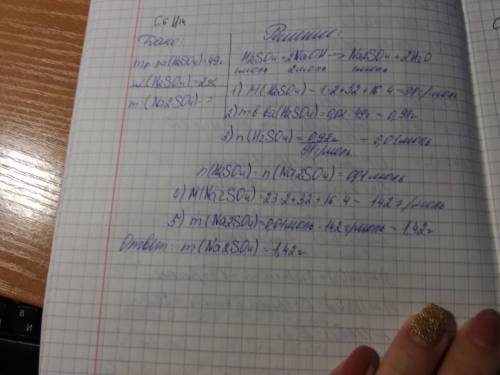 C6 H14
Дано:
Решение
mр-ра(H2SO4)=49г
H2SO4+2NaOH→Na2SO4+2H2O
1моль 2моль 1моль
w(H2SO4)=2%
1) M(H2SO4)=1·2+32+16·4=98г/моль
m(Na2SO4)-?
2) mв-ва(H2SO4)=0,02·49г=0,98г
3) n(H2SO4)=0,98г
98г/моль
=0,01моль
n(H2SO4)=n(Na2SO4)=0,01моль
4) M(Na2SO4)=23·2+32+16·4=142г/моль
5) m(Na2SO4)=0,01моль·142г/моль=1,42г
Ответ: m(Na2SO4)=1,42г